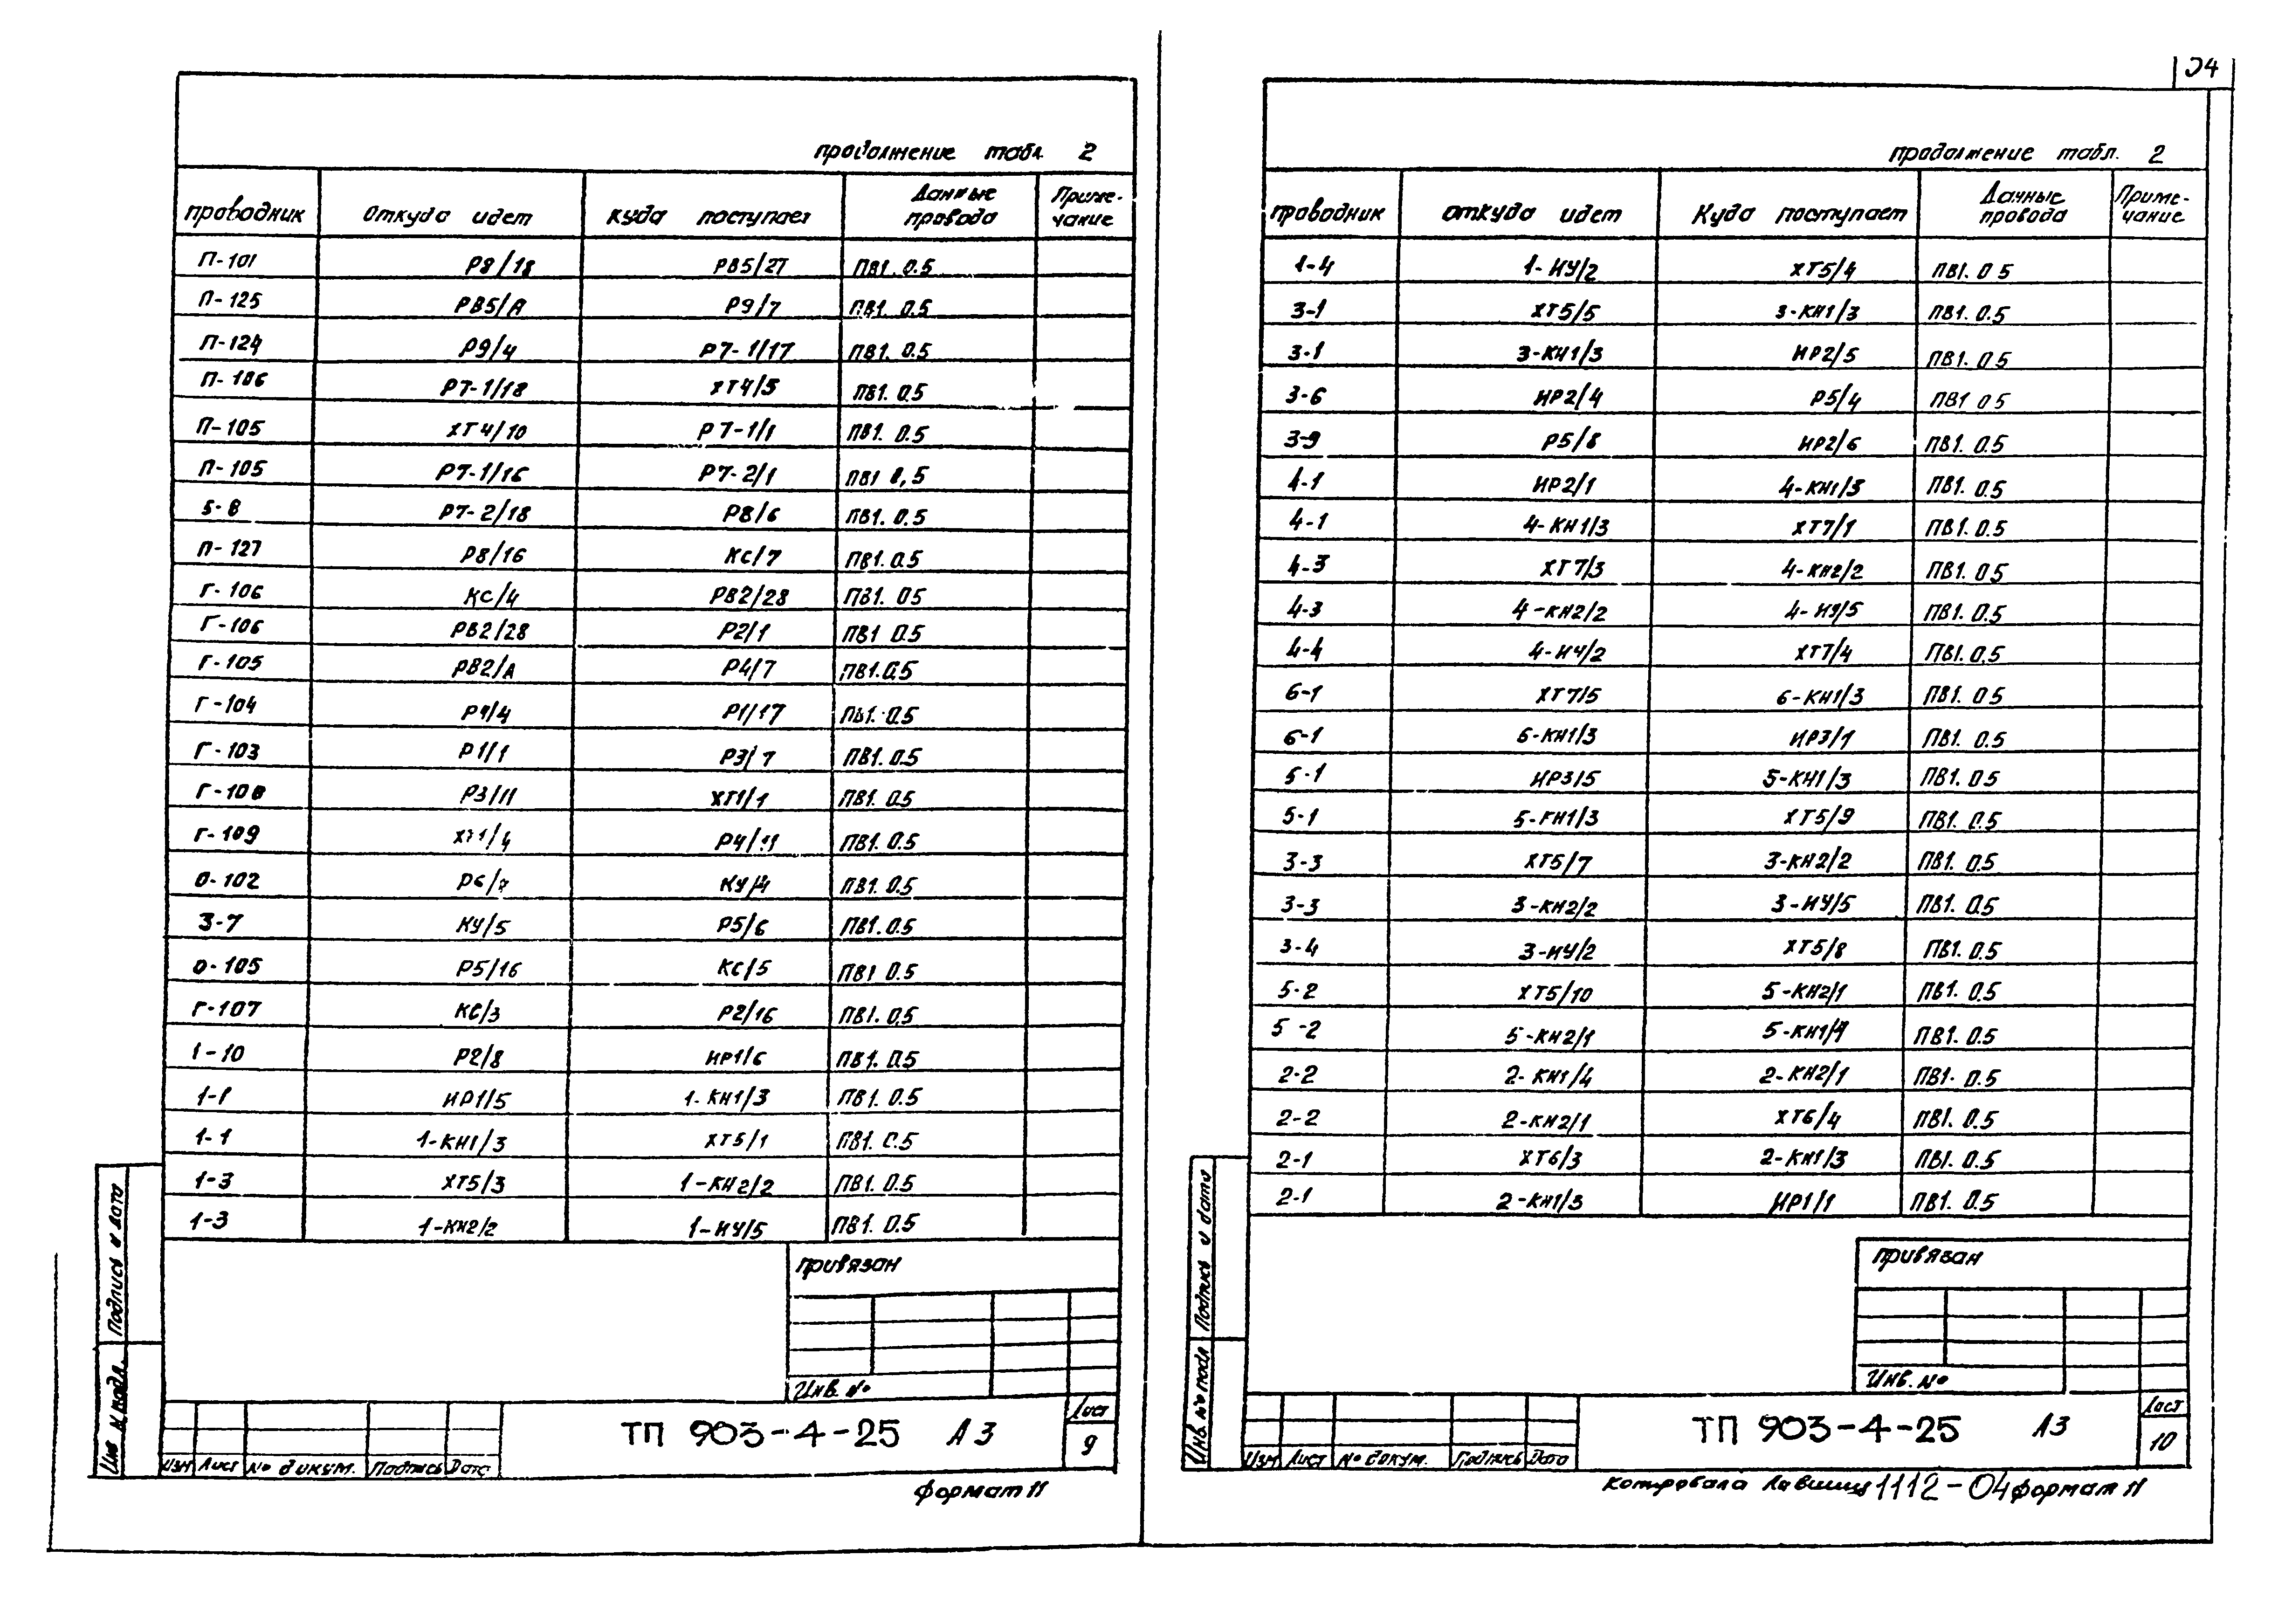 продолжение табл. 2
проводник Откуда идет Куда поступает Данные провода Примечание
П-101 Р8/18 РВ5/27 ПВ1. 0.5
П-125 РВ5/А Р9/7 ПВ1. 0.5
П-124 Р9/4 Р7-1/17 ПВ1. 0.5
П-106 Р7-1/18 ХТ4/5 ПВ1. 0.5
П-105 ХТ4/10 Р7-1/1 ПВ1. 0.5
П-105 Р7-1/16 Р7-2/1 ПВ1 0,5
5-8 Р7-2/18 Р8/6 ПВ1. 0.5
П-127 Р8/16 КС/7 ПВ1. 0.5
Г-106 КС/4 РВ2/28 ПВ1. 05
Г-106 РВ2/28 Р2/1 ПВ1 0.5
Г-105 РВ2/А Р4/7 ПВ1.0.5
Г-104 Р4/4 Р1/17 ПВ1. 0.5
Г-103 Р1/1 Р3/7 ПВ1. 0.5
Г-108 Р3/11 ХТ1/1 ПВ1. 0.5
Г-109 ХТ1/4 Р4/11 ПВ1. 0.5
0-102 КУ/4 ПВ1. 0.5
3-7 КУ/5 Р5/6 ПВ1. 0.5
0-105 Р5/16 КС/5 ПВ1 0.5
Г-107 КС/3 Р2/16 ПВ1. 0.5
1-10 Р2/8 ИР1/6 ПВ1. 0.5
1-1 ИР1/5 1-КН1/3 ПВ1. 0.5
1-1 1-КН1/3 ХТ5/1 ПВ1. 0.5
1-3 ХТ5/3 1-КН2/2 ПВ1. 0.5
1-3 1-КН2/2 1-ИУ/5 ПВ1. 0.5
привязан
Инв. №
Инв № подл. Подпись и дата
Изм Лист № докум. Подпись Дата
ТП 903-4-25 А3
Лист
9
Формат 11
34
продолжение табл. 2
проводник откуда идет Куда поступает Данные провода Примечание
1-4 1-ИУ/2 ХТ5/4 ПВ1. 0 5
3-1 ХТ5/5 3-КН1/3 ПВ1. 0.5
3-1 3-КН1/3 ИР2/5 ПВ1. 0.5
3-6 ИР2/4 Р5/4 ПВ1 0 5
3-9 Р5/8 ИР2/6 ПВ1. 0.5
4-1 ИР2/1 4-КН1/3 ПВ1. 0.5
4-1 4-КН1/3 ХТ7/1 ПВ1. 0.5
4-3 ХТ7/3 4-КН2/2 ПВ1. 0.5
4-3 4-КН2/2 4-ИУ/5 ПВ1. 0.5
4-4 4-ИУ/2 ХТ7/4 ПВ1. 0.5
6-1 ХТ7/5 6-КН1/3 ПВ1. 0.5
6-1 6-КН1/3 ИР3/1 ПВ1. 0.5
5-1 ИР3/5 5-КН1/3 ПВ1. 0.5
5-1 5-КН1/3 ХТ5/9 ПВ1. 0.5
3-3 ХТ5/7 3-КН2/2 ПВ1. 0.5
3-3 3-КН2/2 3-ИУ/5 ПВ1. 0.5
3-4 3-ИУ/2 ХТ5/8 ПВ1. 0.5
5-2 ХТ5/10 5-КН2/1 ПВ1. 0.5
5-2 5-КН2/1 5-КН1/4 ПВ1. 0.5
2-2 2-КН1/4 2-КН2/1 ПВ1. 0.5
2-2 2-КН2/1 ХТ6/4 ПВ1. 0.5
2-1 ХТ6/3 2-КН1/3 ПВ1. 0.5
2-1 2-КН1/3 ИР1/1 ПВ1. 0.5
привязан
Инв. №
Инв. № подл Подпись и дата
Изм Лист № докум. Подпись Дата
ТП 903-4-25 А3
Лист
10
копировала 1112-04 формат 11